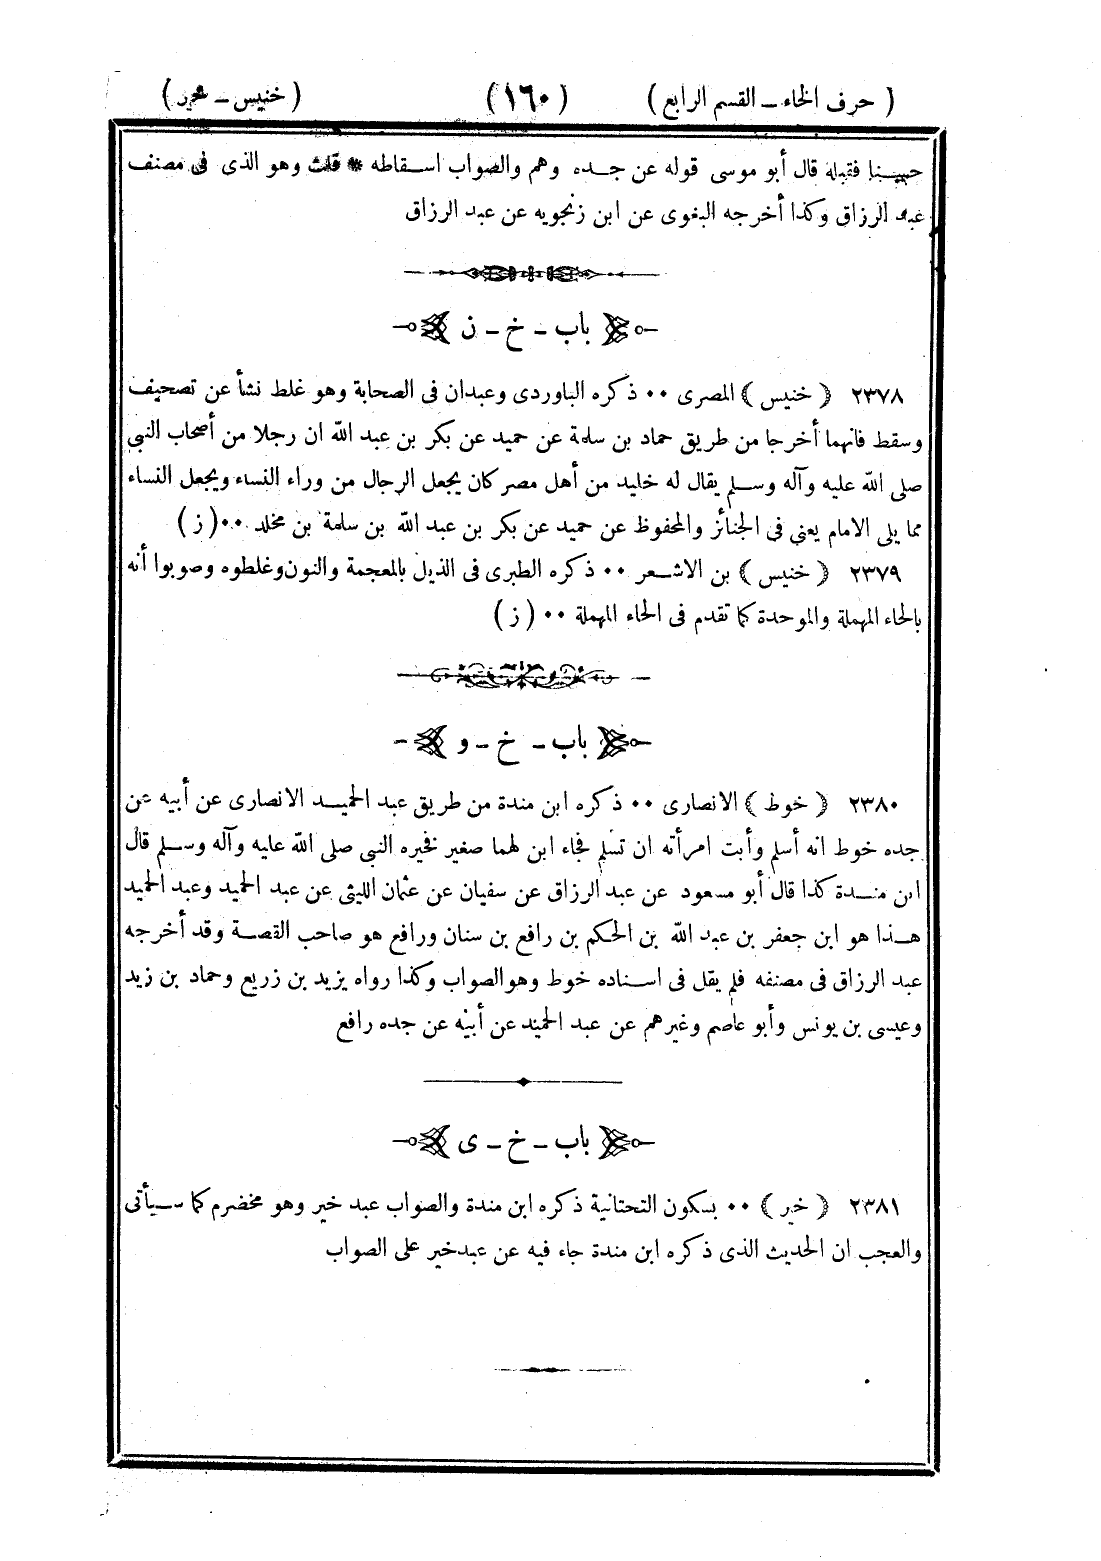 ( حرف الخاء ـ القسم الرابع ) ( ١٦٠ ) ( خنيس ـ خير )
حبيبنا فقبله قال أبو موسى قوله عن جده وهم والصواب اسقاطه * قلت وهو الذى فى مصنف
عبد الرزاق وكذا أخرجه البغوى عن ابن زنجويه عن عبد الرزاق
باب ـ خ ـ ن
٢٣٧٨ ( خنيس ) المصرى ٠٠ ذكره الباوردى وعبدان فى الصحابة وهو غلط نشأ عن تصحيف
وسقط فانهما أخرجا من طريق حماد بن سلمة عن حميد عن بكر بن عبد الله ان رجلا من أصحاب النبي
صلى الله عليه وآله وسلم يقال له خليد من أهل مصر كان يجعل الرجال من وراء النساء ويجعل النساء
مما يلى الامام يعني فى الجنائز والمحفوظ عن حميد عن بكر بن عبد الله بن سلمة بن مخلد ٠٠ ( ز )
٢٣٧٩ ( خنيس ) بن الاشعر ٠٠ ذكره الطبرى فى الذيل بالمعجمة والنون وغلطوه وصوبوا أنه
بالحاء المهملة والموحدة كما تقدم فى الحاء المهملة ٠٠ ( ز )
باب ـ خ ـ و
٢٣٨٠ ( خوط ) الانصارى ٠٠ ذكره ابن مندة من طريق عبد الحميد الانصارى عن أبيه عن
جده خوط انه أسلم وأبت امرأته ان تسلم فجاء ابن لهما صغير فخيره النبى صلى الله عليه وآله وسلم قال
ابن مندة كذا قال أبو مسعود عن عبد الرزاق عن سفيان عن عثمان الليثى عن عبد الحميد وعبد الحميد
هذا هو ابن جعفر بن عبد الله بن الحكم بن رافع بن سنان ورافع هو صاحب القصة وقد أخرجه
عبد الرزاق فى مصنفه فلم يقل فى اسناده خوط وهو الصواب وكذا رواه يزيد بن زريع وحماد بن زيد
وعيسى بن يونس وأبو عاصم وغيرهم عن عبد الحميد عن أبيه عن جده رافع
باب ـ خ ـ ى
٢٣٨١ ( خير ) ٠٠ بسكون التحتانية ذكره ابن مندة والصواب عبد خير وهو مخضرم كما سيأتى
والعجب ان الحديث الذى ذكره ابن مندة جاء فيه عن عبد خير على الصواب